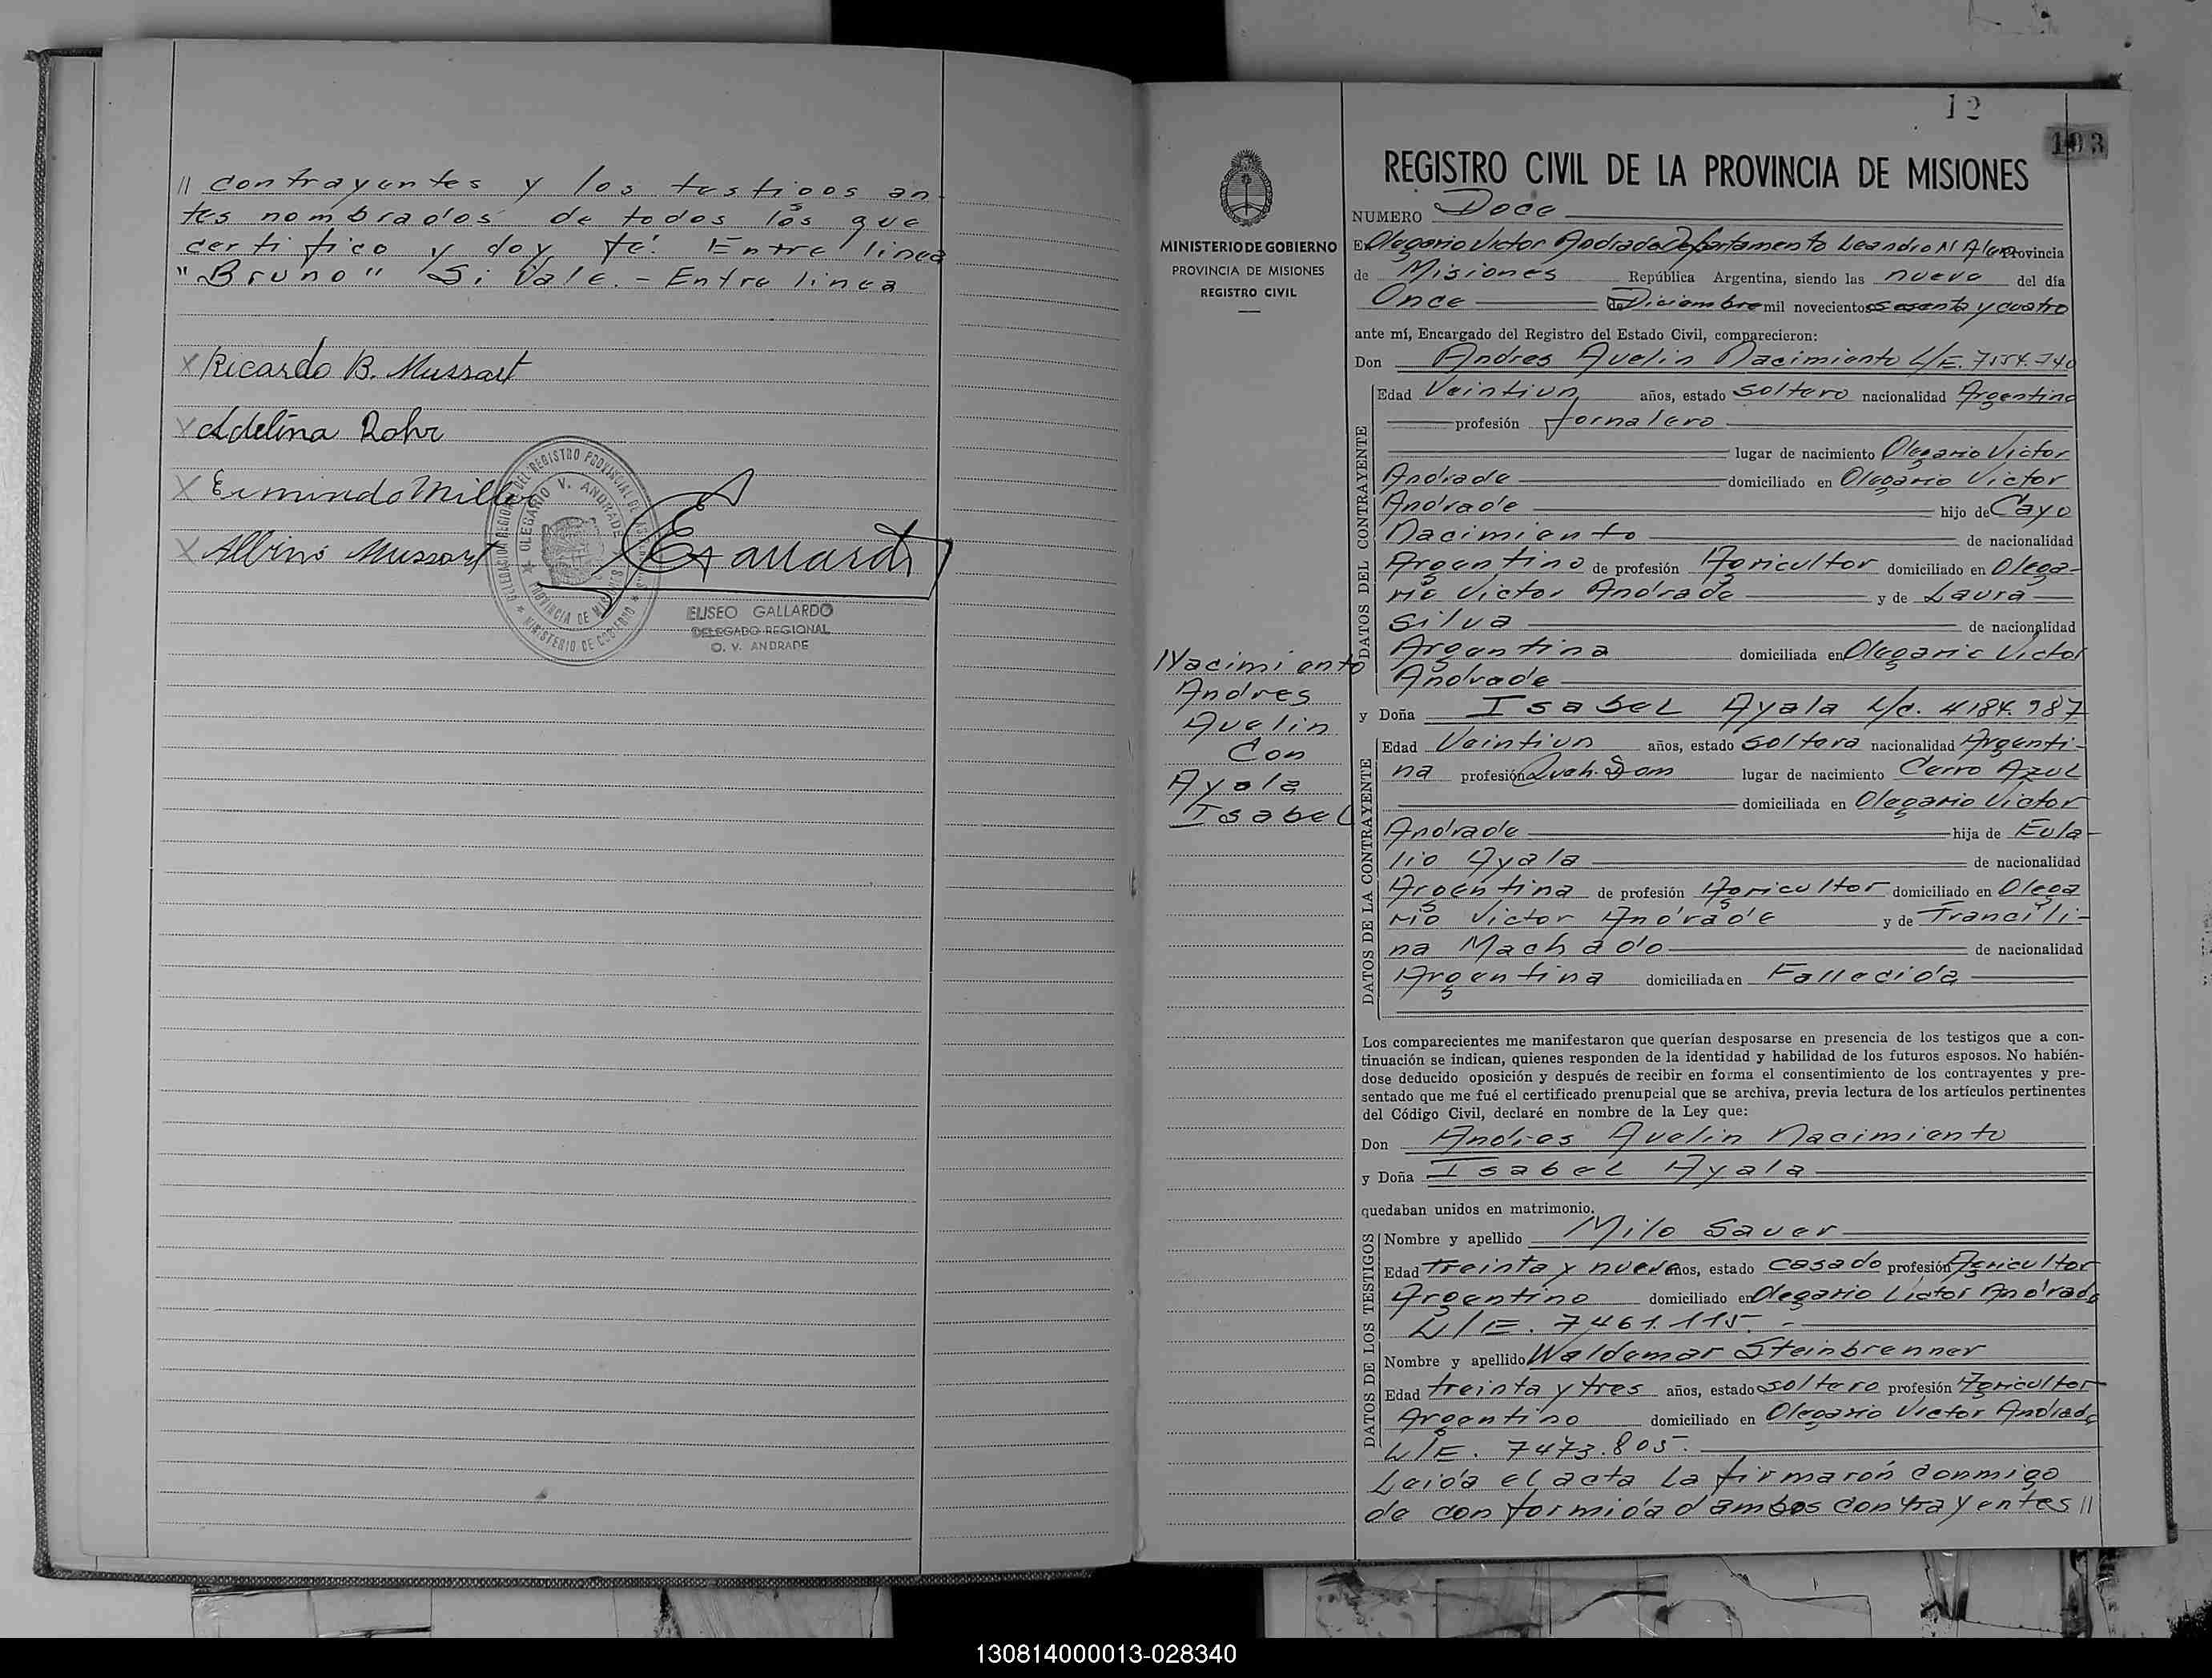 // contrayentes y los testigos an-
tes nombrados de todos los que
certifico y doy fé. Entre linea
"Bruno" Si Vale. - Entre linea
x Ricardo B. Mussart
x Adelina Rohr
x Ermindo Miller
x Albino Mussart
DELEGACION REGIONAL DEL REGISTRO PROVINCIAL DE
OLEGARIO V. ANDRADE
PROVINCIA DE MISIONES
MINISTERIO DE GOBIERNO
ELISEO GALLARDO
DELEGADO REGIONAL
O. V. ANDRADE
12
103
MINISTERIO DE GOBIERNO
PROVINCIA DE MISIONES
REGISTRO CIVIL
Nacimiento
Andres
Avelin
Con
Ayala
Isabel
REGISTRO CIVIL DE LA PROVINCIA DE MISIONES
NUMERO Doce
En Olegario Victor Andrade Departamento Leandro N Alem Provincia
de Misiones República Argentina, siendo las nueve del día
Once de Diciembre mil novecientos sesenta y cuatro
ante mí, Encargado del Registro del Estado Civil, comparecieron:
Don Andres Avelin Nacimiento L/E. 7154.740
DATOS DEL CONTRAYENTE
Edad Veintiun años, estado soltero nacionalidad Argentina
profesión Jornalero
lugar de nacimiento Olegario Victor
Andrade domiciliado en Olegario Victor
Andrade hijo de Cayo
Nacimiento de nacionalidad
Argentina de profesión Agricultor domiciliado en Olega-
rio Victor Andrade y de Laura
Silva de nacionalidad
Argentina domiciliada en Olegario Victor
Andrade
y Doña Isabel Ayala L/c. 4184.987
DATOS DE LA CONTRAYENTE
Edad Veintiun años, estado soltera nacionalidad Argenti-
na profesión Queh. Dom lugar de nacimiento Cerro Azul
domiciliada en Olegario Victor
Andrade hija de Eula-
lio Ayala de nacionalidad
Argentina de profesión Agricultor domiciliado en Olega
rio Victor Andrade y de Francili-
na Machado de nacionalidad
Argentina domiciliada en Fallecida
Los comparecientes me manifestaron que querían desposarse en presencia de los testigos que a con-
tinuación se indican, quienes responden de la identidad y habilidad de los futuros esposos. No habién-
dose deducido oposición y después de recibir en forma el consentimiento de los contrayentes y pre-
sentado que me fué el certificado prenupcial que se archiva, previa lectura de los artículos pertinentes
del Código Civil, declaré en nombre de la Ley que:
Don Andres Avelin Nacimiento
y Doña Isabel Ayala
quedaban unidos en matrimonio.
DATOS DE LOS TESTIGOS
Nombre y apellido Milo Sauer
Edad treinta y nueve años, estado casado profesión Agricultor
Argentino domiciliado en Olegario Victor Andrade
L/E. 7461.115. -
Nombre y apellido Waldemar Steinbrenner
Edad treinta y tres años, estado soltero profesión Agricultor
Argentino domiciliado en Olegario Victor Andrade
L/E. 7473.805.
Leida el acta la firmarón conmigo
de conformidad ambos contrayentes //
130814000013-028340